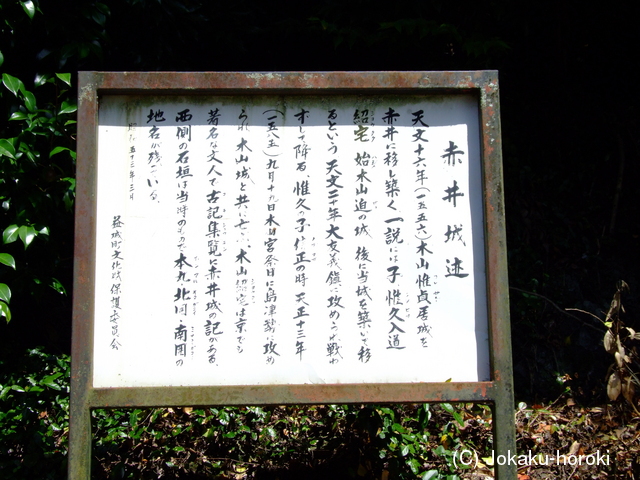 赤井城迹
天文十六年(一五五六)木山惟貞居城を
赤井に移し築く 一説には子惟久入道
紹宅 始木山迫の城 後に当城を築いて移
るという 天文二十年大友義鎮に攻めうめ戦わ
ずして降る、惟久の子惟正の時 天正十三年
(一五八五)九月十九日木山宮祭日に島津勢に攻め
られ木山城と共に亡 木山紹宅は京でも
著名な文人で古記集覧に赤井城の記がある、
西側の石垣は当時のもので本丸、北囲、南囲の
地名が残っている、
五十三年三月
益城町文化財保護委員会
(C) Jokaku-horoki